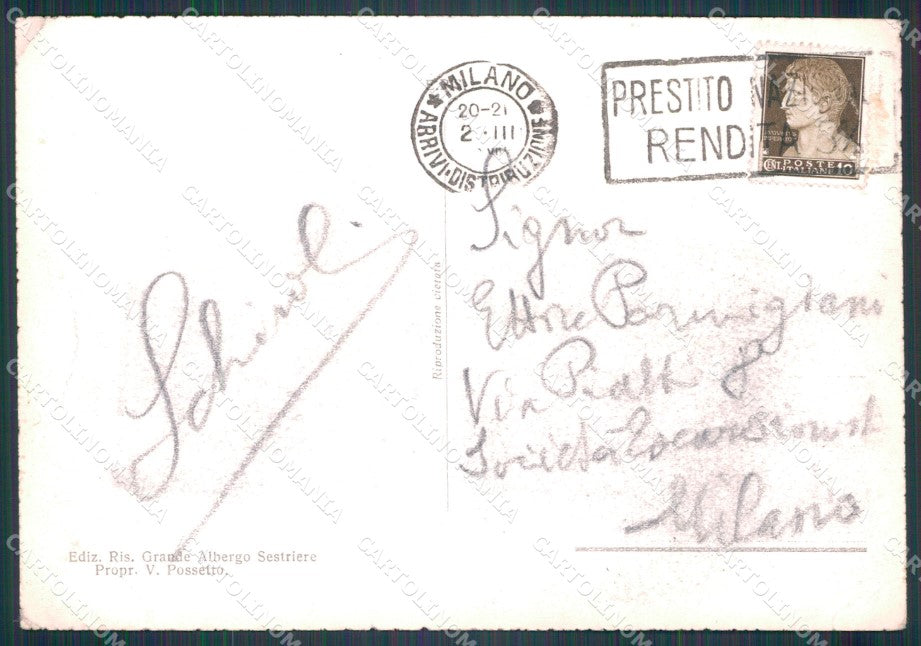 MILANO
20-21
2·III
ARRIVI·DISTRIBUZIONE
PRESTITO NAZIONALE
RENDITA
POSTE
CENT. ITALIANE 10
Signor
Ettore Parmigiani
Via Piatti
Società Escursionisti
Milano
Schiavoli
Riproduzione vietata
Ediz. Ris. Grande Albergo Sestriere
Propr. V. Possetto.
CARTOLINOMANIA